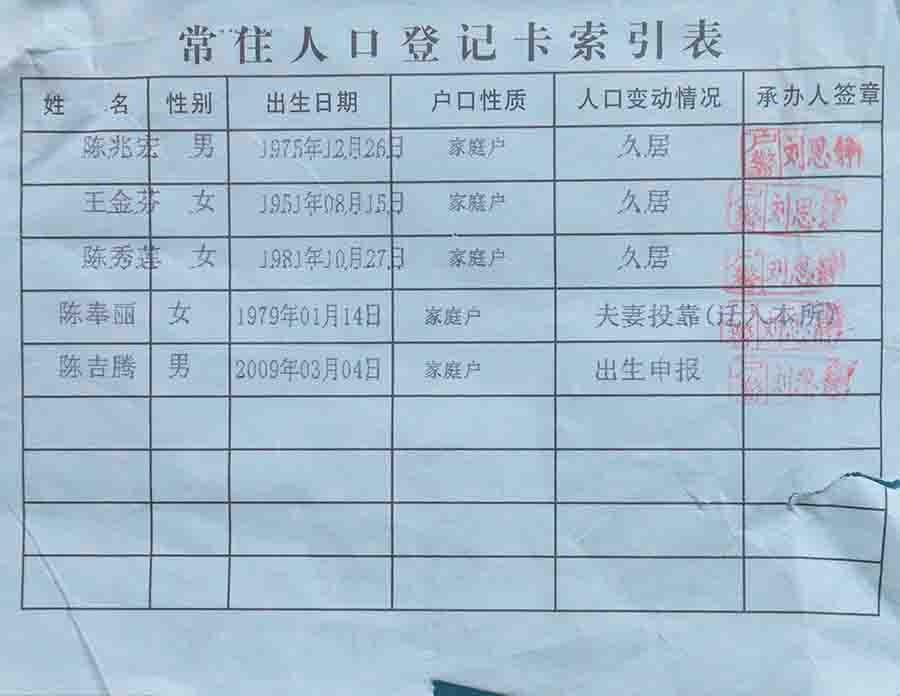 常住人口登记卡索引表
姓 名 性别 出生日期 户口性质 人口变动情况 承办人签章
陈兆宏 男 1975年12月26日 家庭户 久居 户警 刘思静
王金芬 女 1951年08月15日 家庭户 久居 刘思
陈秀莲 女 1981年10月27日 家庭户 久居 刘思静
陈奉丽 女 1979年01月14日 家庭户 夫妻投靠(迁入本所)
陈吉腾 男 2009年03月04日 家庭户 出生申报 刘思